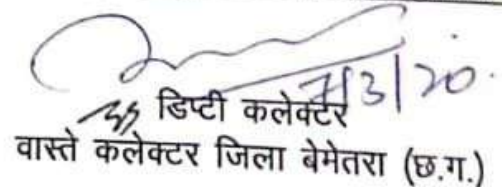 7/3/20.
डिप्टी कलेक्टर
वास्ते कलेक्टर जिला बेमेतरा (छ.ग.)